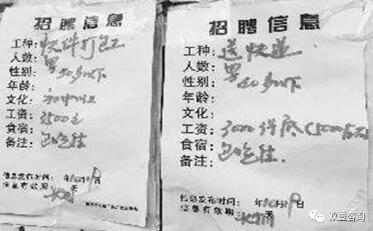 招聘信息
工种：快件打包工
人数：男
性别：50岁以下
年龄：
文化：初中以上
工资：2500元
食宿：包吃住
备注：
信息发布时间：年 月 日
信息有效期：天
招聘信息
工种：送快递
人数：男
性别：40岁以下
年龄：
文化：
工资：3000保底（5000左右）
食宿：包吃住.
备注：
信息发布时间：年 月 日
信息有效期：天
双壹咨询